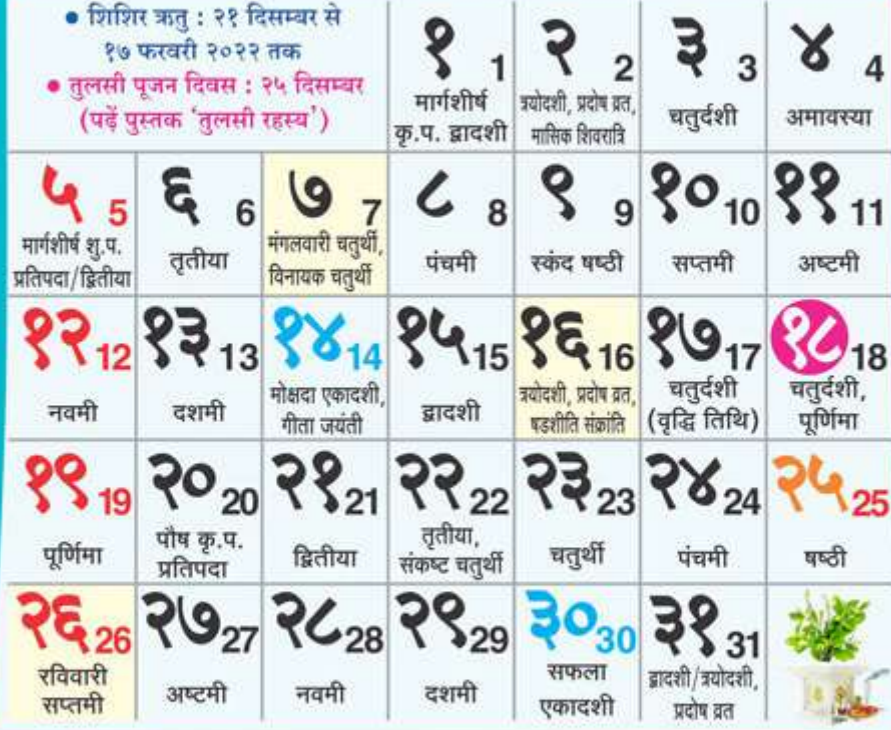 • शिशिर ऋतु : २१ दिसम्बर से
१७ फरवरी २०२२ तक
• तुलसी पूजन दिवस : २५ दिसम्बर
(पढ़ें पुस्तक ‘तुलसी रहस्य’)
१ 1
मार्गशीर्ष
कृ.प. द्वादशी
२ 2
त्रयोदशी, प्रदोष व्रत,
मासिक शिवरात्रि
३ 3
चतुर्दशी
४ 4
अमावस्या
५ 5
मार्गशीर्ष शु.प.
प्रतिपदा/द्वितीया
६ 6
तृतीया
७ 7
मंगलवारी चतुर्थी,
विनायक चतुर्थी
८ 8
पंचमी
९ 9
स्कंद षष्ठी
१० 10
सप्तमी
११ 11
अष्टमी
१२ 12
नवमी
१३ 13
दशमी
१४ 14
मोक्षदा एकादशी,
गीता जयंती
१५ 15
द्वादशी
१६ 16
त्रयोदशी, प्रदोष व्रत,
षडशीति संक्रांति
१७ 17
चतुर्दशी
(वृद्धि तिथि)
१८ 18
चतुर्दशी,
पूर्णिमा
१९ 19
पूर्णिमा
२० 20
पौष कृ.प.
प्रतिपदा
२१ 21
द्वितीया
२२ 22
तृतीया,
संकष्ट चतुर्थी
२३ 23
चतुर्थी
२४ 24
पंचमी
२५ 25
षष्ठी
२६ 26
रविवारी
सप्तमी
२७ 27
अष्टमी
२८ 28
नवमी
२९ 29
दशमी
३० 30
सफला
एकादशी
३१ 31
द्वादशी/त्रयोदशी,
प्रदोष व्रत